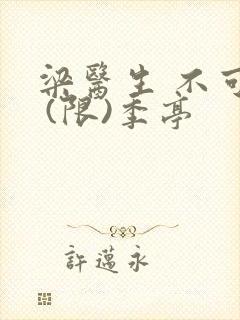 梁醫生 不可
(限)季亭
許薖永